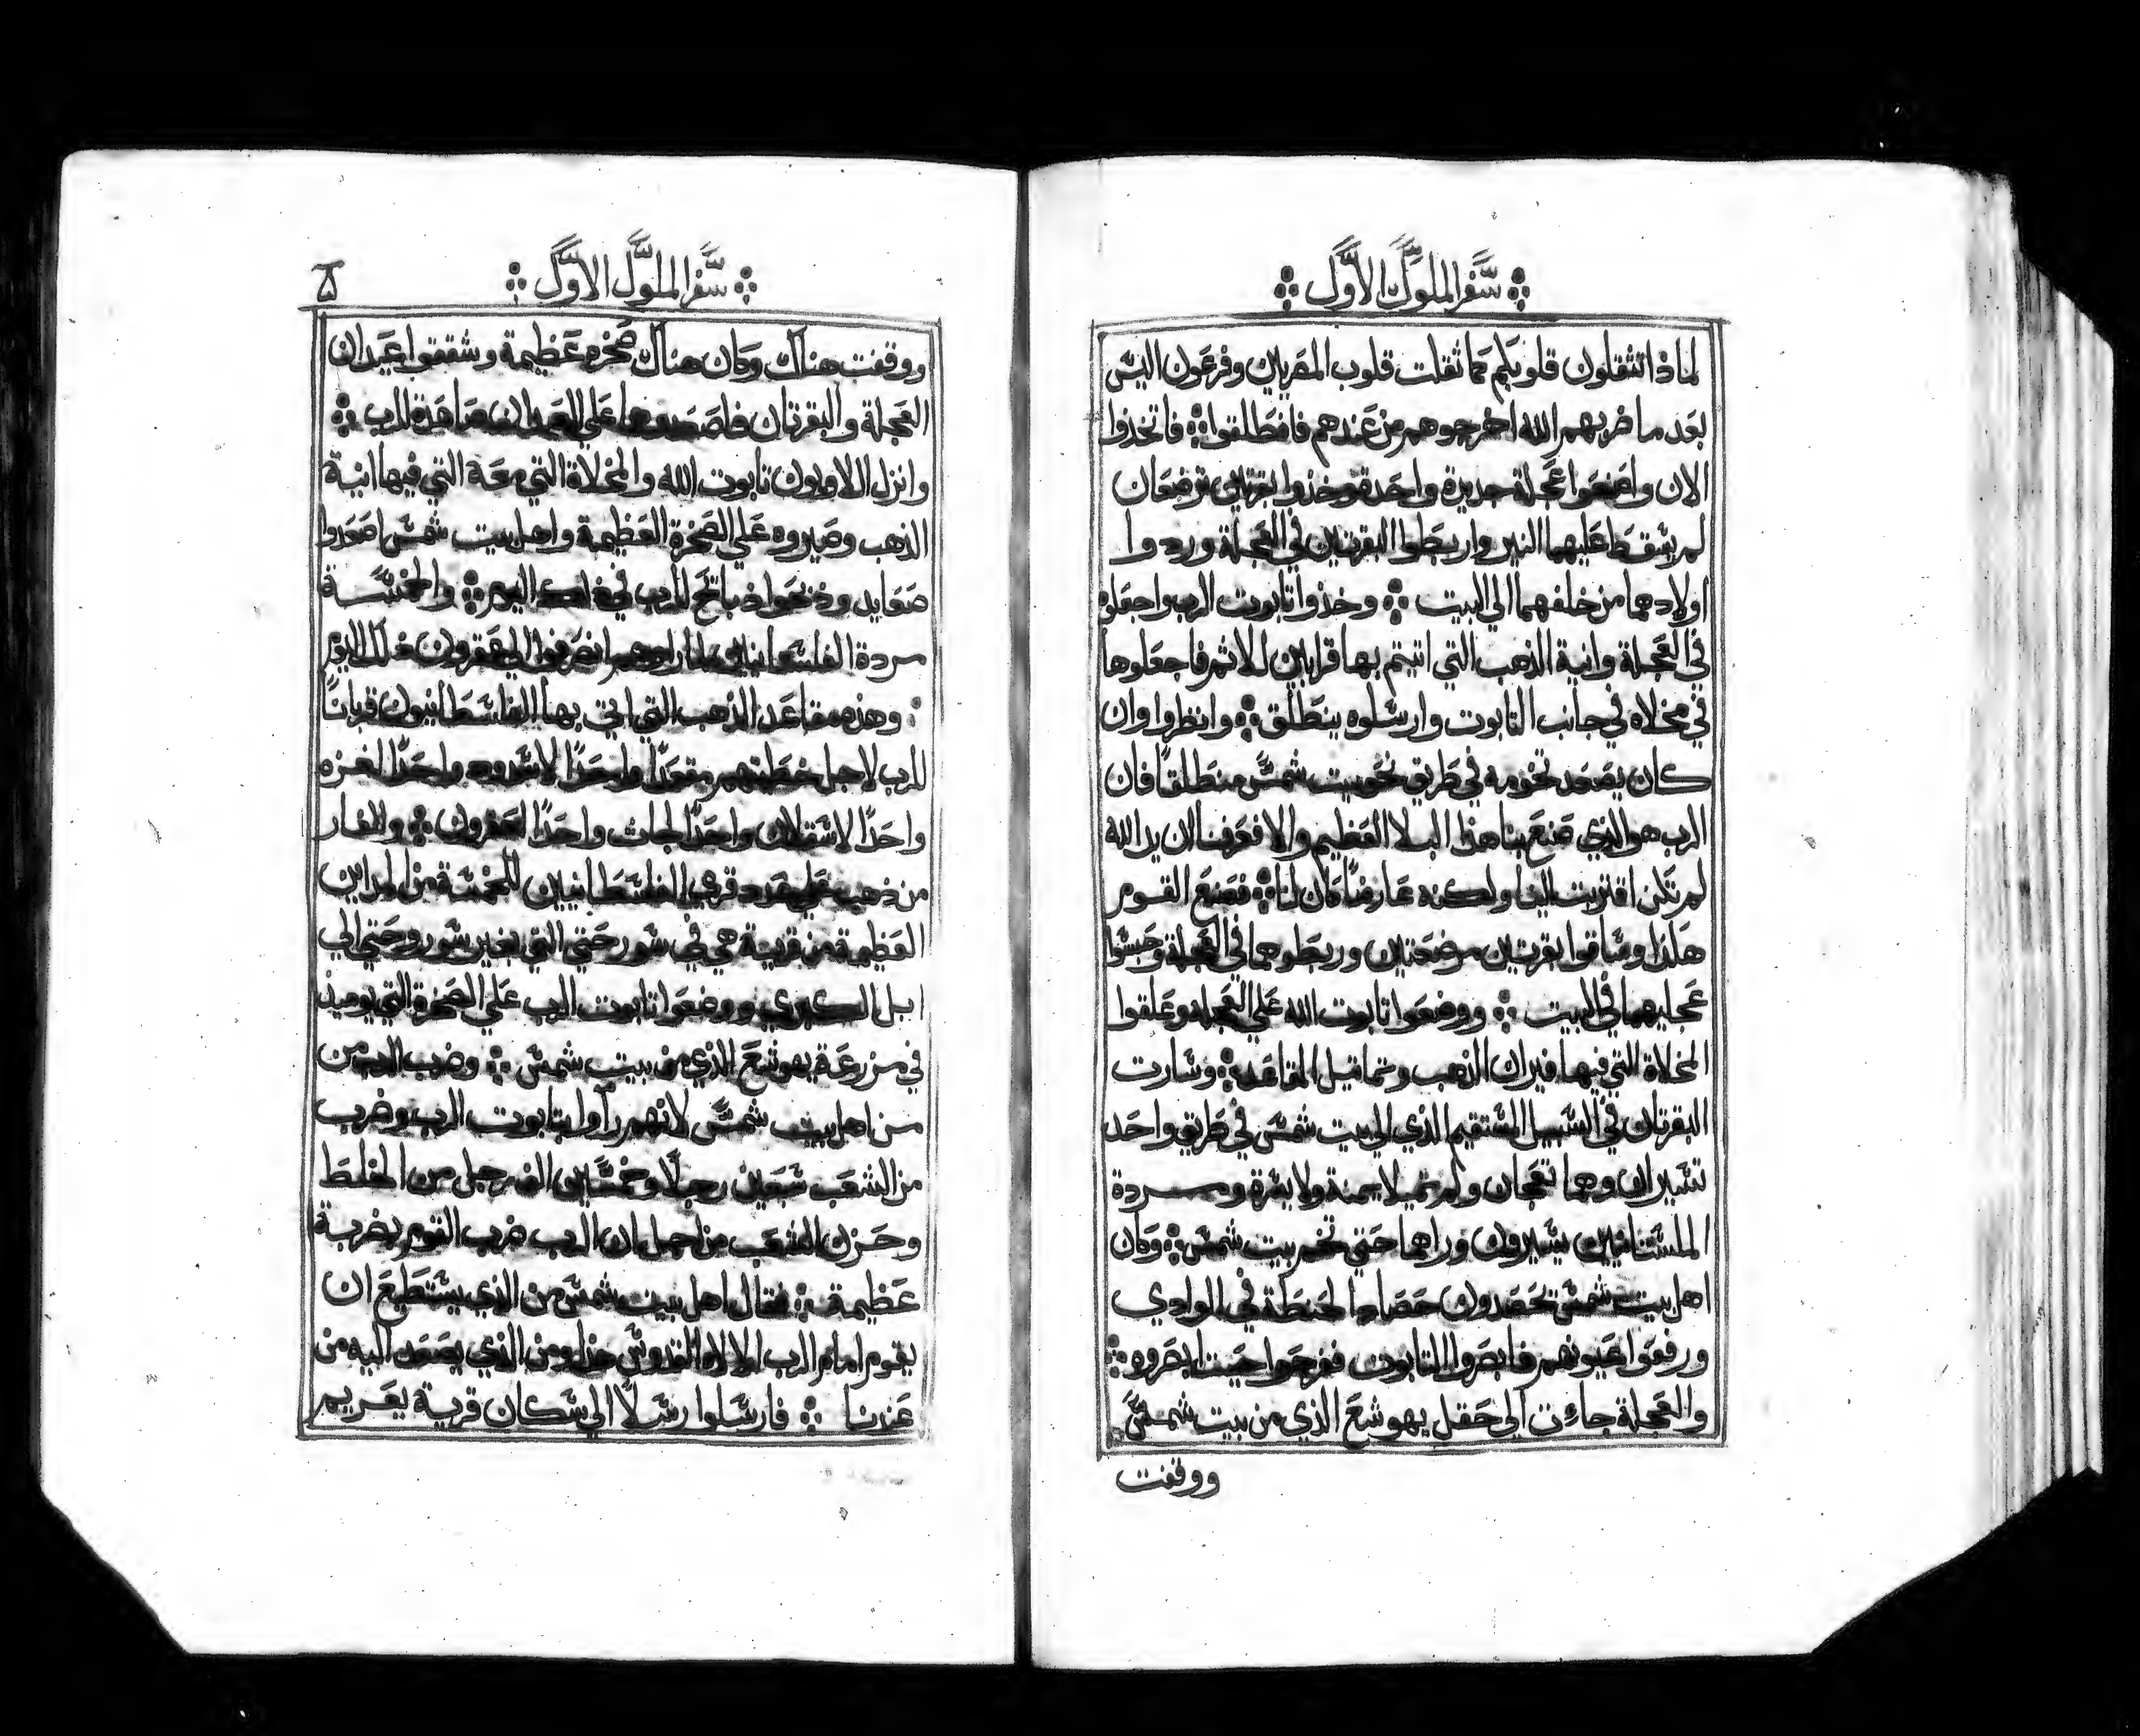 سفر الملوك الاول
لماذا تثقلون قلوبكم كما ثقلت قلوب المصريين وفرعون اليس
بعد ما ضربهم الله اخرجوهم من عندهم فانطلقوا فاتخذوا
الان واصنعوا عجلة جديدة واحدة وخذوا بقرتين ترضعان
لم يسقط عليهما النير واربطوا البقرتين في العجلة وردوا
اولادهما من خلفهما الي البيت وخذوا تابوت الرب واجعلوه
في العجلة وانية الذهب التي اتيتم بها قرابين للاثم فاجعلوها
في مخلاه في جانب التابوت وارسلوه ينطلق وانظروا وان
كان يصعد تخومه في طريق نحو بيت شمس منطلقا فان
الرب هو الذي صنع بنا هذا البلا العظيم والا فعرفنا ان يد الله
لم تكن اقتربت الينا ولكنه عارضا كان لنا فصنع القوم
هكذا وساقوا بقرتين مرضعتين وربطوهما في العجلة وحبسوا
عجليهما في البيت ووضعوا تابوت الله علي العجله وعلقوا
المخلاة التي فيها فيران الذهب وتماثيل المقاعد وسارت
البقرتان في السبيل المستقيم الذي الي بيت شمس في طريق واحد
تسيران وهما تعجان ولم تميلا يمنة ولا يسرة ومردة
الملستنانيين يسيرون وراهما حتي تخم بيت شمس وكان
اهل بيت شمس يحصدون حصاد الحنطة في الوادي
ورفعوا عيونهم فابصروا التابوت ففرحوا حيت ابصروه
والعجلة جاءت الي حقل يهوشع الذي من بيت شمس
ووقفت
سفر الملوك الاول
٥
ووقفت هناك وكان هناك صخره عظيمة وشققوا عيدان
العجلة والبقرتان فاصعدوها علي العيدان صاعدة للرب
وانزل اللاويون تابوت الله والمخلاة التي معه التي فيها انية
الذهب وصيروه علي الصخرة العظيمة واهل بيت شمس اصعدوا
صعايد وذبحوا ذبائح للرب في ذلك اليوم والخمسة
مردة الفلسطانيين لما راوهم انصرفوا الي عقرون ذلك اليوم
وهذه مقاعد الذهب التي اتي بها الفلسطانيون قربانا
للرب لاجل خطيتهم مقعدا واحدا لاشدود واحدا لغزه
واحدا لاسقلان واحدا لجاث واحدا لعقرون والفار
من ذهب علي عدد قري الفلسطانيين للخمسة من المداين
العظيمة من قرية هي في سور حتي التي بغير سور وحتي الي
ابل الكبري ووضعوا تابوت الرب علي الصخرة التي يوميذ
في مزرعة يهوشع الذي من بيت شمس وضرب الرب من
من اهل بيت شمس لانهم رأوا بتابوت الرب وضرب
من الشعب سبعين رجلا وخمسين الف رجل من الخلط
وحزن الشعب من اجل ان الرب ضرب القوم بضربة
عظيمة فقال اهل بيت شمس من الذي يستطيع ان
يقوم امام الرب الالاه القدوس هذا ومن الذي يصعد اليه من
عندنا فارسلوا رسلا الي سكان قرية يعريم